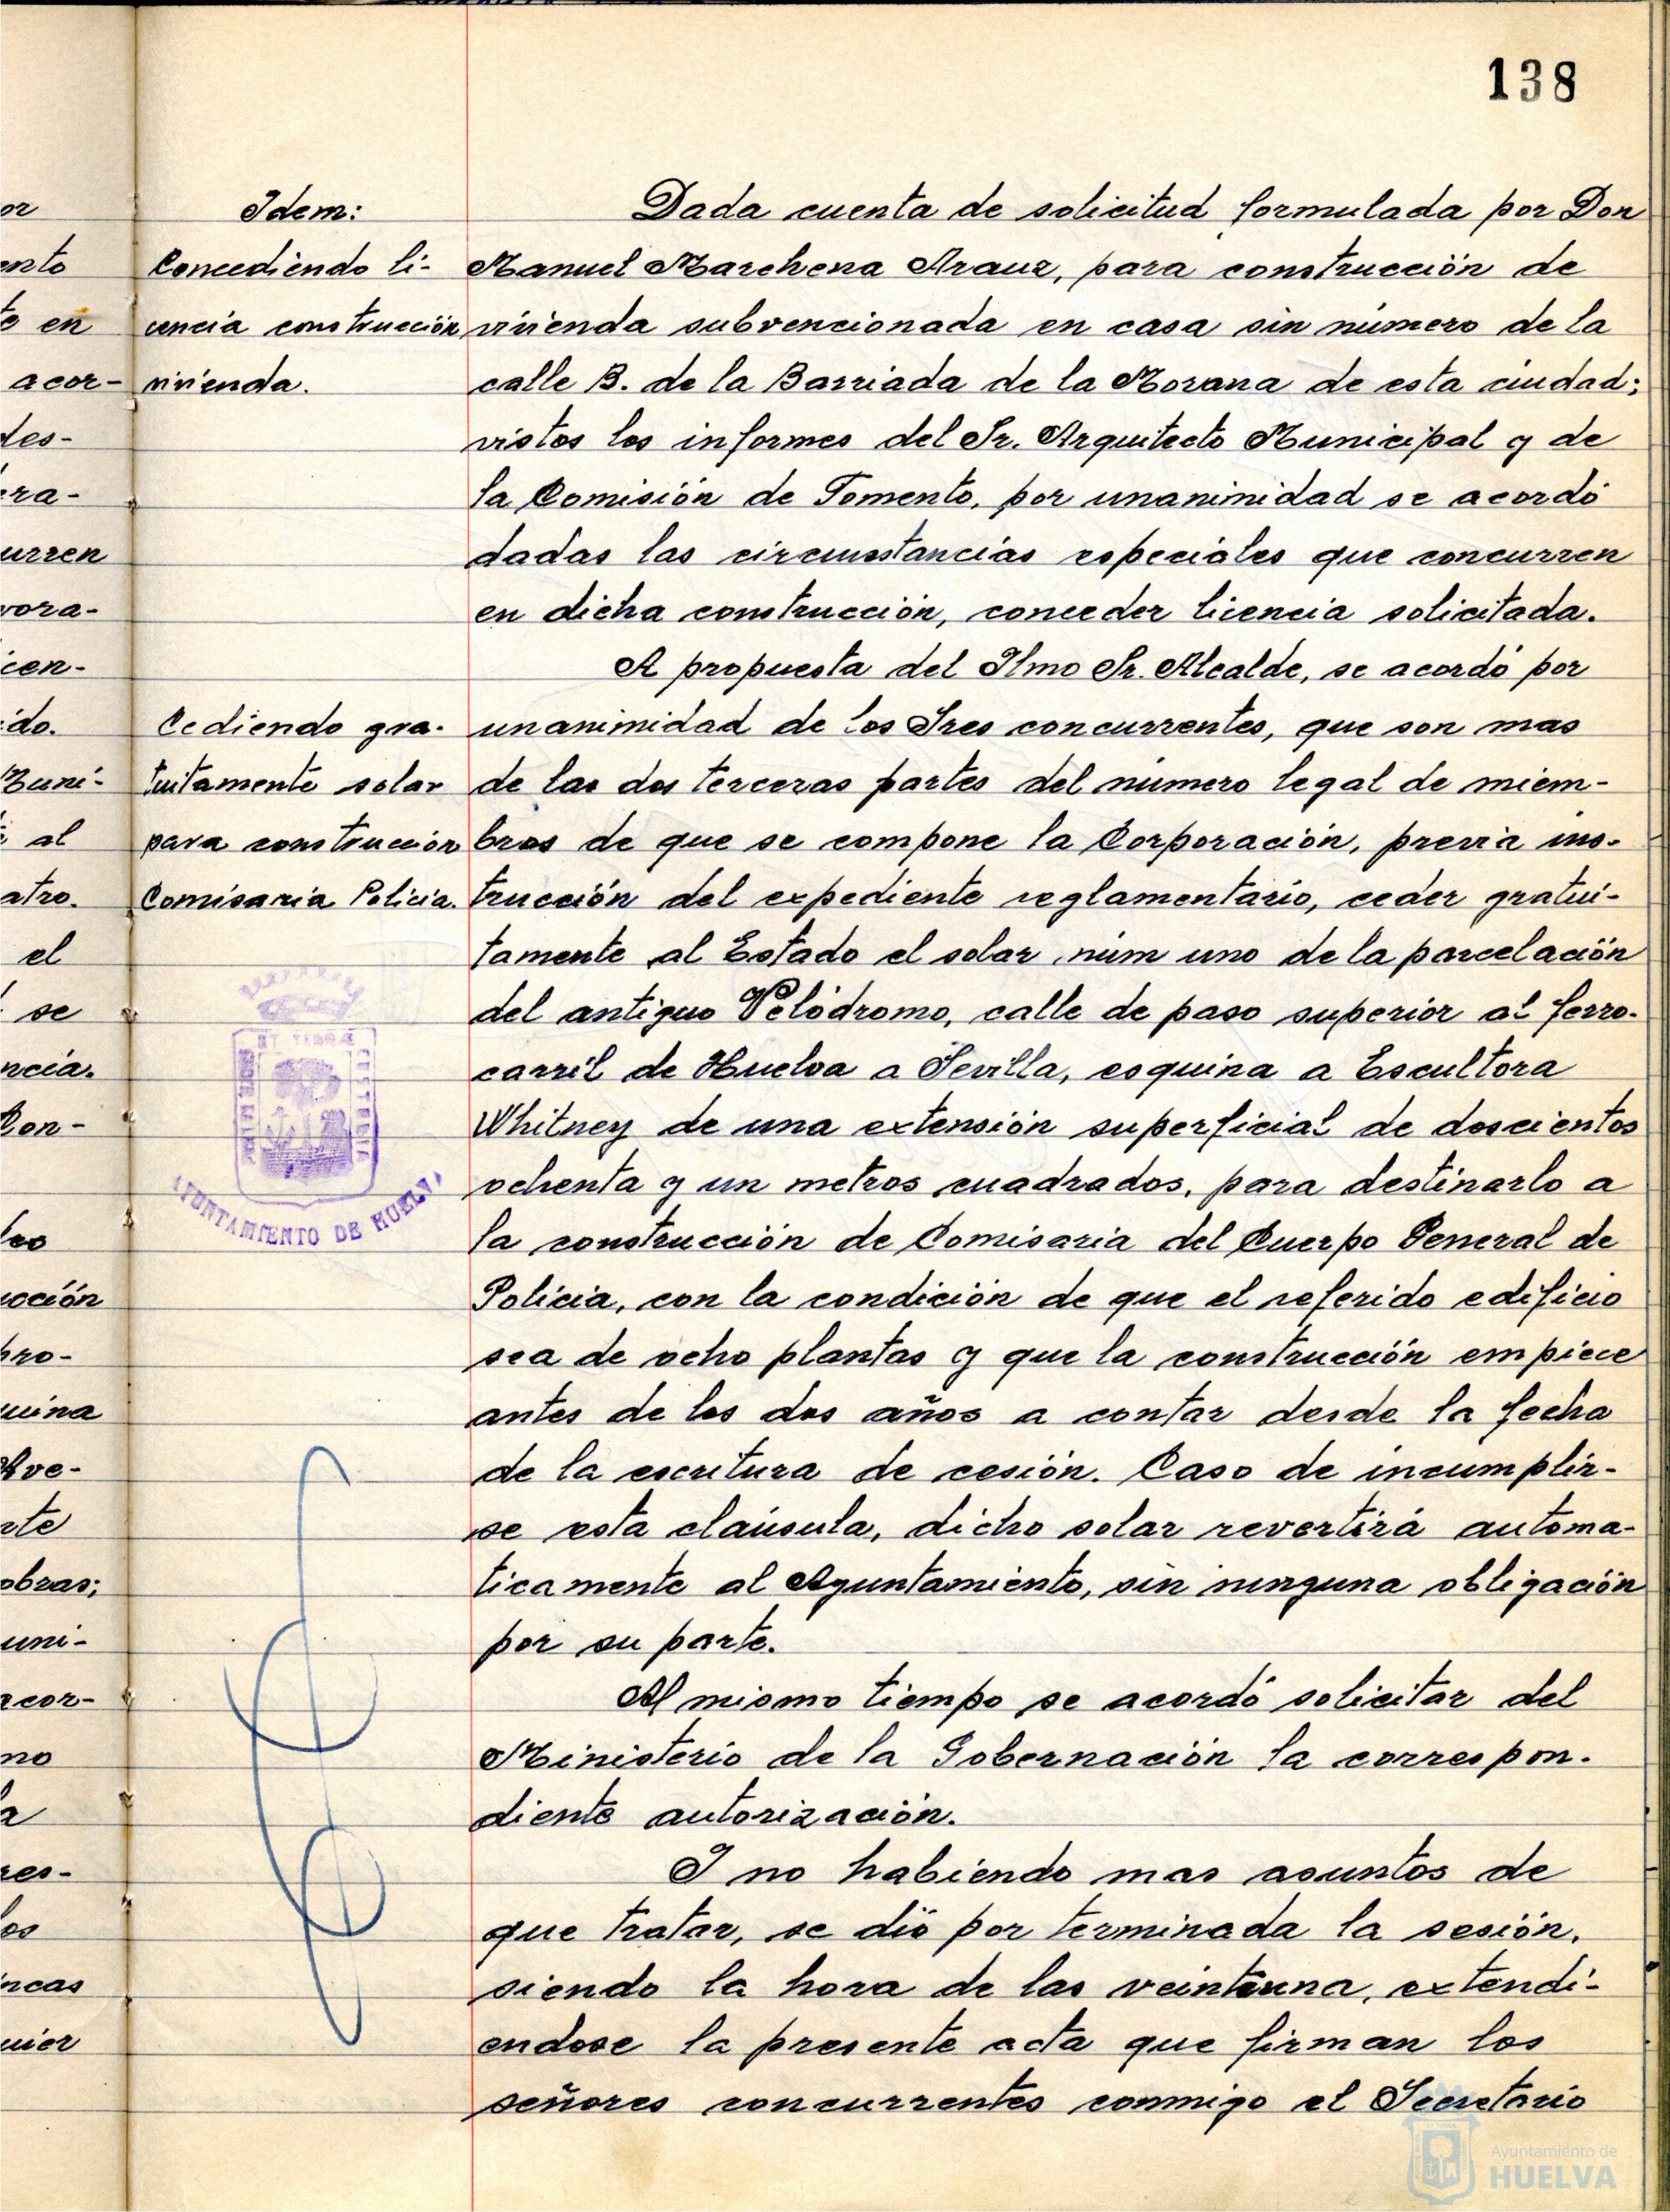 138
Idem:
Concediendo li-
cencia construcción
vivienda.
Dada cuenta de solicitud formulada por Don
Manuel Marchena Arauz, para construcción de
vivienda subvencionada en casa sin número de la
calle B. de la Barriada de la Morana de esta ciudad;
vistos los informes del Sr. Arquitecto Municipal y de
la Comisión de Fomento, por unanimidad se acordó
dadas las circunstancias especiales que concurren
en dicha construcción, conceder licencia solicitada.
Cediendo gra-
tuitamente solar
para construcción
Comisaria Policia.
A propuesta del Ilmo Sr. Alcalde, se acordó por
unanimidad de los Sres concurrentes, que son mas
de las dos terceras partes del número legal de miem-
bros de que se compone la Corporación, previa ins-
trucción del expediente reglamentario, ceder gratui-
tamente al Estado el solar núm uno de la parcelación
del antiguo Velódromo, calle de paso superior al ferro-
carril de Huelva a Sevilla, esquina a Escultora
Whitney de una extensión superficial de doscientos
ochenta y un metros cuadrados, para destinarlo a
la construcción de Comisaria del Cuerpo General de
Policia, con la condición de que el referido edificio
sea de ocho plantas y que la construcción empiece
antes de los dos años a contar desde la fecha
de la escritura de cesión. Caso de incumplir-
se esta claúsula, dicho solar revertirá automa-
ticamente al Ayuntamiento, sin ninguna obligación
por su parte.
Al mismo tiempo se acordó solicitar del
Ministerio de la Gobernación la correspon-
diente autorización.
I no habiendo mas asuntos de
que tratar, se dió por terminada la sesión,
siendo la hora de las veintiuna, extendi-
endose la presente acta que firman los
señores concurrentes conmigo el Secretario
AYUNTAMIENTO DE HUELVA
or
ento
te en
acor-
des-
era-
urren
vora-
cen-
ido.
Muni-
al
atro.
el
se
ncia.
Con-
los
cción
pro-
uina
Ave-
nte
obras;
uni-
acor-
no
la
res-
los
ncas
uier
Ayuntamiento de
HUELVA